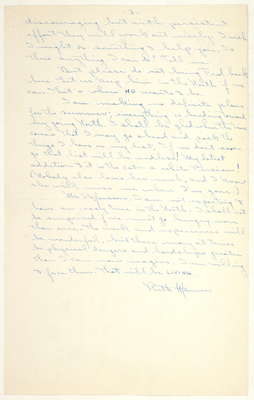 - 2 -
discouraging but with persistent
effort they will work out nicely. I wish
I might do something to help you. Is
there anything I can do? Tell me.
But please, do not bring Fred back
here. Let us keep him in the North if we
can. That's where HE wants to be.
I am making no definite plans
for the summer; everything is heading toward
my going North. I shall be glad when
comes that I may go ahead and pack the
things I have on my list. If we don't soon
go that list will be endless! My latest
addition to it is the
Nobody else here
who will miss me when I'm gone.)
Mr. Stefansson, I am not expecting to
have an easy time in the North. I shall not
be surprised if we must go hungry more
than once. The work and experiences will
be wonderful, but there may at times
be physical dangers and hardships greater
than I can now imagine. I am willing
to face them. That will be LIVING.
Ruth